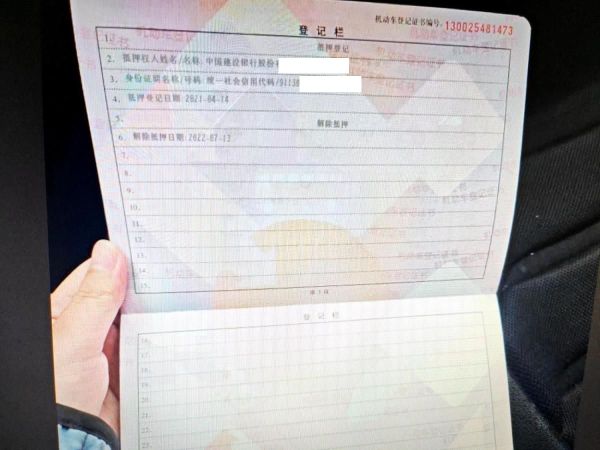 机动车登记证书编号: 130025481473
登记栏
1. 抵押登记
2. 抵押权人姓名/名称:中国建设银行股份
3. 身份证明名称/号码:统一社会信用代码/91130
4. 抵押登记日期:2021-04-14
5. 解除抵押
6. 解除抵押日期:2022-07-13
7.
8.
9.
10.
11.
12.
13.
14.
15.
第 3 页
登记栏
16.
17.
18.
19.
20.
21.
22.
23.